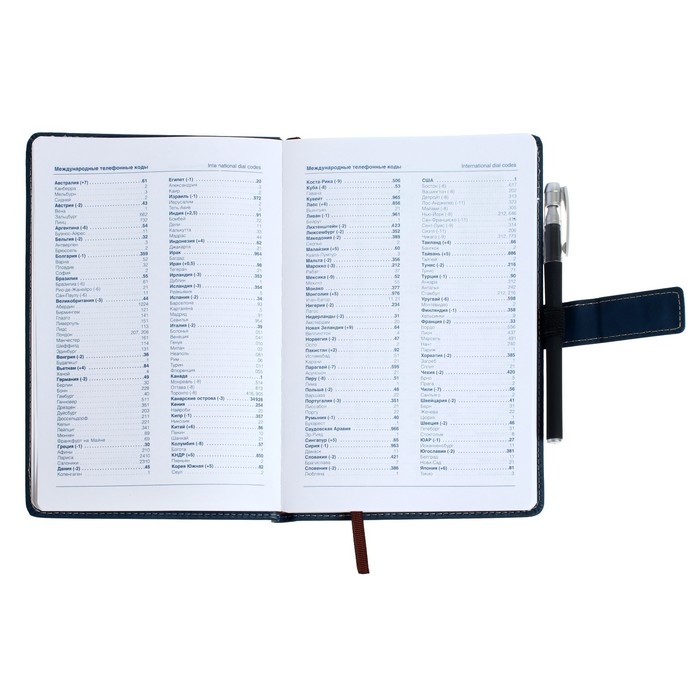 Международные телефонные коды
International dial codes
Австралия (+7) 61
Канберра 2
Мельбурн 3
Сидней 2
Австрия (-2) 43
Вена
Зальцбург 662
Линц 732
Аргентина (-6) 54
Буэнос-Айрес
Бельгия (-2) 32
Антверпен 3
Брюссель 2
Болгария (-1) 359
Варна 52
Пловдив 32
София 2
Бразилия 55
Бразилиа (-6) 61
Рио-де-Жанейро (-6) 21
Сан-Паулу (-6)
Великобритания (-3) 44
Абердин 1224
Бирмингем 121
Глазго 141
Ливерпуль
Лидс
Лондон
Манчестер 161
Шеффилд 114
Эдинбург 131
Венгрия (-2) 36
Будапешт 1
Вьетнам (+4) 84
Ханой 4
Германия (-2) 49
Берлин 30
Бонн
Гамбург 40
Ганновер 511
Дрезден 351
Дуйсбург 203
Дюссельдорф 211
Кельн 221
Лейпциг 341
Мюнхен 89
Франкфурт на Майне 69
Греция (-1) 30
Афины 210
Лариса 2410
Салоники 2310
Дания (-2) 45
Копенгаген
Египет (-1) 20
Александрия 3
Каир 2
Израиль (-1) 972
Иерусалим 2
Тель-Авив 3
Индия (+2,5) 91
Бомбей 22
Дели 11
Калькутта 33
Мадрас 44
Индонезия (+4) 62
Джакарта 21
Ирак 964
Багдад 1
Иран (+0,5) 98
Тегеран 21
Ирландия (-3) 353
Дублин 1
Исландия (-3) 354
Рейкьявик
Испания (-2) 34
Барселона
Картахена
Мадрид
Севилья
Италия (-2) 39
Болонья
Венеция
Генуя
Милан
Неаполь
Рим
Турин
Флоренция
Канада 1
Монреаль (-8) 514
Оттава (-8) 613
Торонто (-8)
Канарские острова (-3) 34928
Кения 254
Найроби 20
Кипр (-1) 357
Никосия
Китай (+5) 86
Пекин
Шанхай
Колумбия (-8) 57
Богота 1
КНДР (+5) 850
Пхеньян 2
Корея Южная (+5) 82
Сеул 2
Международные телефонные коды
International dial codes
Коста-Рика (-9) 506
Куба (-8) 53
Гавана 7
Кувейт 965
Лаос (+4) 856
Вьентьян 21
Ливан (-1) 961
Бейрут 1
Лихтенштейн (-2) 423
Люксембург (-2) 352
Македония (-2) 389
Скопье 2
Малайзия (+5) 60
Куала-Лумпур 3
Мальта (-2) 356
Марокко (-3) 212
Рабат 37
Мексика (-9) 52
Мехико 55
Монако 377
Монголия (+5) 976
Улан-Батор
Нигерия (-2) 234
Лагос 1
Нидерланды (-2) 31
Амстердам 20
Новая Зеландия (+9) 64
Веллингтон 4
Норвегия (-2) 47
Осло
Пакистан (+2) 92
Исламабад 51
Карачи
Парагвай (-7) 595
Асунсьон 21
Перу (-8) 51
Лима 1
Польша (-2) 48
Варшава 22
Португалия (-3) 351
Лиссабон 21
Порту 22
Румыния (-1) 40
Бухарест 21
Саудовская Аравия 966
Эр-Рияд 1
Сингапур (+5) 65
Сирия (-1) 963
Дамаск 11
Словакия (-2) 421
Братислава
Словения (-2) 386
Любляна 1
США 1
Бостон (-8) 617
Вашингтон (-8) 202
Детройт (-8) 313
Лос-Анджелес (-11)
Майами (-8) 305
Нью-Йорк (-8)
Сан-Франциско (-11)
Сент-Луис (-9) 314
Сиэтл (-11) 206
Чикаго (-9)
Таиланд (+4) 66
Бангкок 2
Тайвань (+5) 886
Тайпей 2
Тунис (-2) 216
Тунис
Турция (-1) 90
Анкара 312
Анталья 242
Стамбул
Уругвай (-6) 598
Монтевидео 2
Финляндия (-1) 358
Хельсинки 9
Франция (-2) 33
Бордо
Лион
Марсель
Ницца
Париж
Хорватия (-2) 385
Загреб 1
Сплит 21
Чехия (-2) 420
Брно
Прага 2
Чили (-7) 56
Сантьяго 2
Швейцария (-2) 41
Берн
Женева 22
Цюрих
Швеция (-2) 46
Гетеборг 31
Стокгольм 8
ЮАР (-1) 27
Йоханнесбург 11
Югославия (-2) 381
Белград 11
Нови-Сад 21
Япония (+6) 81
Токио 3